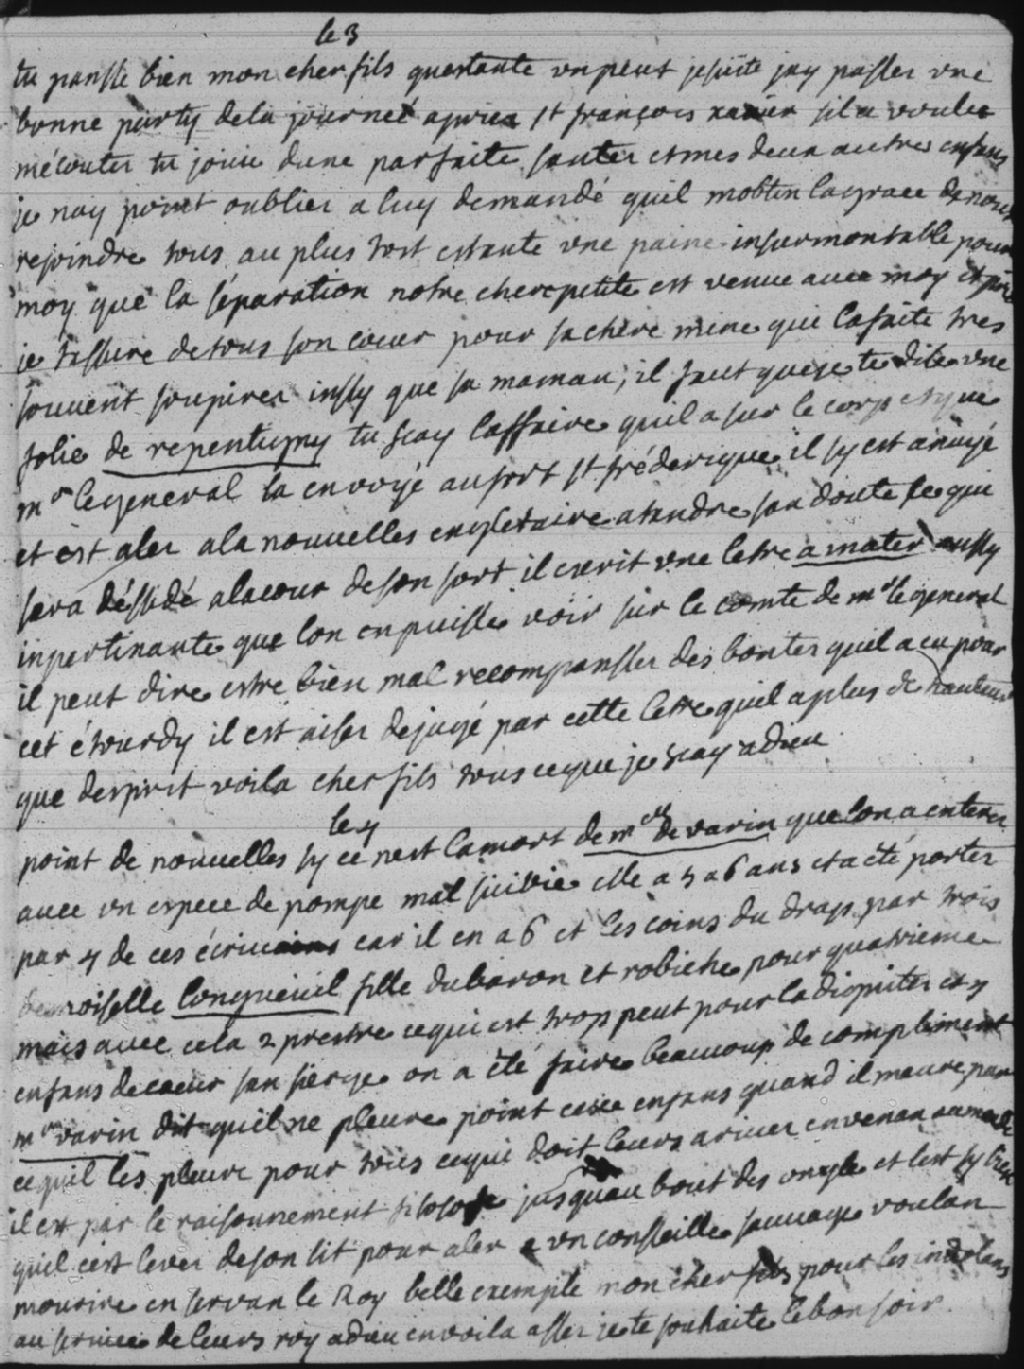 le 3
tu pansse bien mon cher fils questante un peut jesuite jay passer une
bonne party de la journeé aprier st françois xavier sil a voulu
mécouter tu jouie dune parfaite santer et mes deux autres enfans
je nay point oublier a luy demandé quil mobtin la grace de nous
rejoindre tous au plus tost estante une paine insurmontable pour
moy que la séparation notre chere petite est venue avec moy et
je tassure de tous son coeur pour sa chere mine que la faite tres
souvent soupirer inssy que sa maman, il faut que je te dise une
folie de repentigny tu scay laffaire quil a sur le corp et que
mr le general la envoyé au fort st fréderique il sy est anuyé
et est aler a la nouvelles engletaire atandre san doute se qui
sera déssidé a la cour de son sort il ecrit une letre a mater aussy
inpertinante que lon en puisse voir sur le comte de mr le general
il peut dire estre bien mal recompansser des bonter quil a eu pour
cet étourdy il est aiser de jugé par cette letre quil a plus de hauteur
que desprit voila cher fils tous ce que je scay adieu
le 4
point de nouvelles sy ce nest la mort de melle de varin que lon a enterer
avec un espece de pompe mal suivie elle a 5 a 6 ans et a été porter
par 4 de ces écrivains car il en a 6 et les coins du drap par trois
demoiselle longueuil fille du baron et robiche pour quatrieme
mais avec cela 2 prestre ce qui est trop peut pour la digniter et 4
enfans de coeur san sierge on a été faire beaucoup de compliment
mr varin dit quil ne pleure point cesce enfans quand il meure par
ce quil les pleure pour tous ce qui doit leurs ariver en venan au monde
il est par le raisonnement filosofe jusquau bout des ongle et lest sy bien
quil cest lever de son lit pour aler a un consseille sauvage voulan
mourire en servan le Roy belle exemple mon cher fils pour les indolans
au service de leurs roy adieu en voila asser je te souhaite le bonsoir.